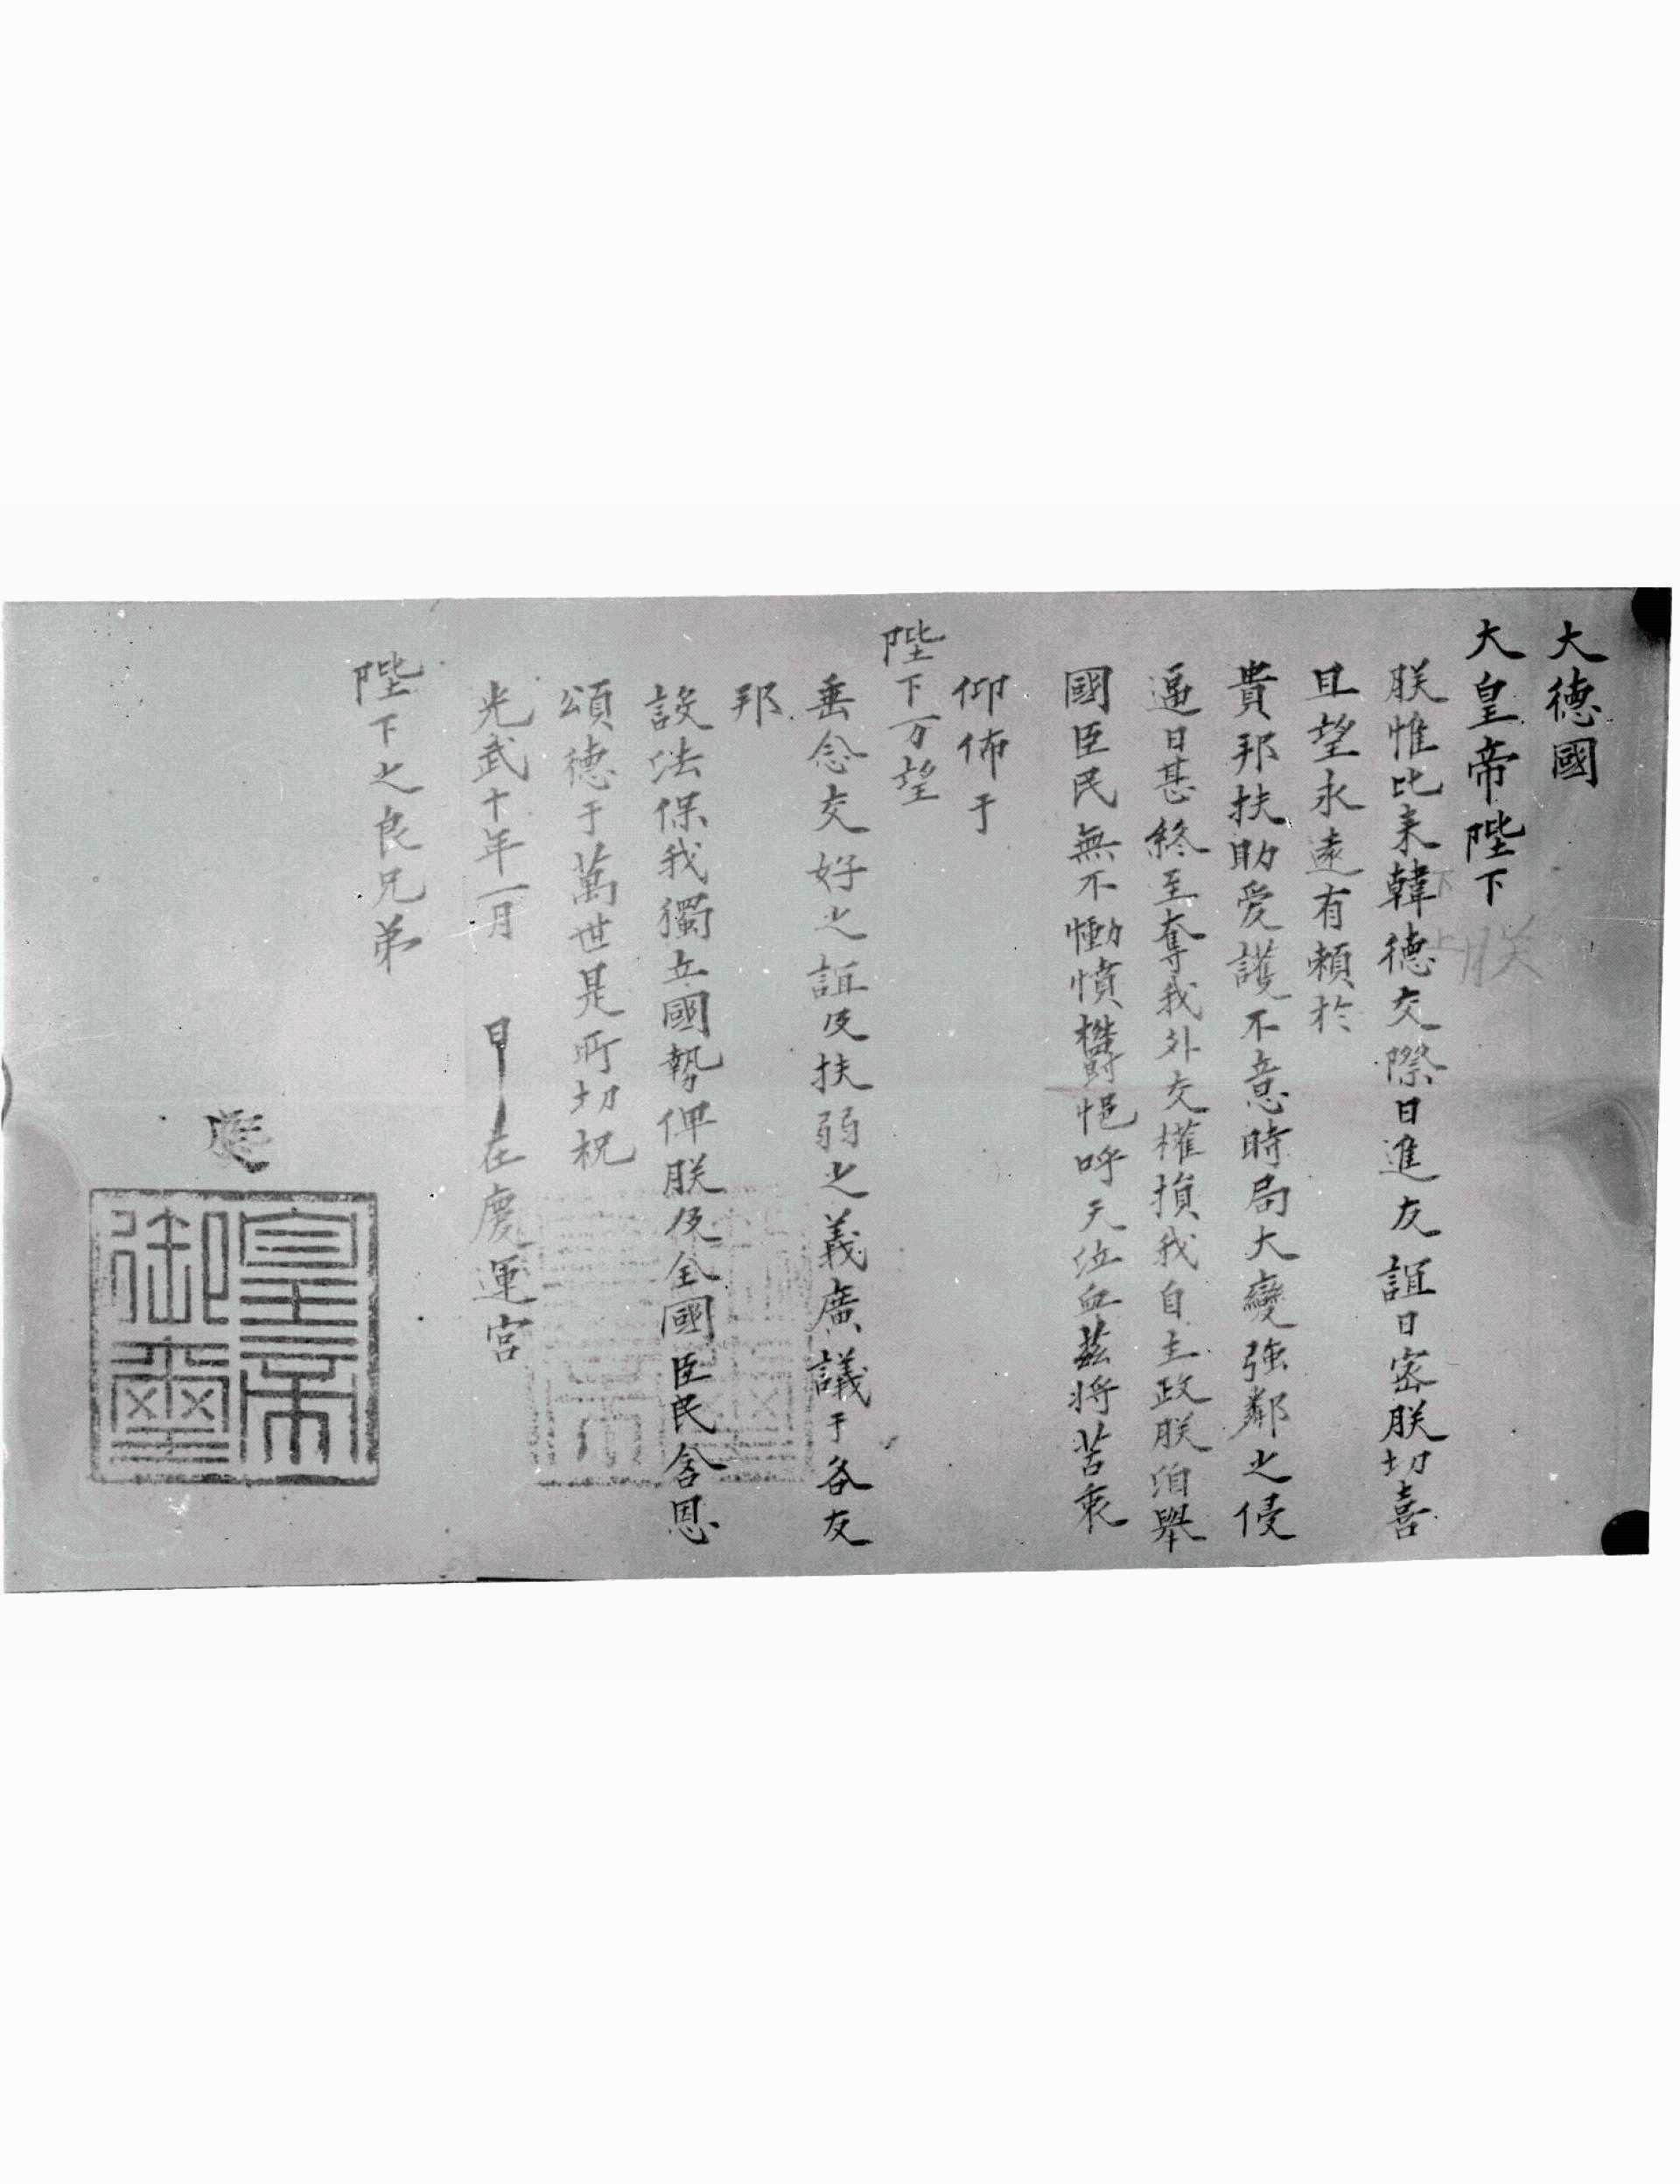 大德國
大皇帝陛下
朕惟比来韓德交際日進友誼日密朕切喜
且望永遠有賴於
貴邦扶助愛護不意時局大變強鄰之侵
逼日甚終至奪我外交權損我自主政朕洎舉
國臣民無不慟憤欝悒呼天泣血茲將苦衷
仰佈于
陛下万望
垂念交好之誼及扶弱之義廣議于各友
邦
設法保我獨立國勢俾朕及全國臣民含恩
頌德于萬世是所切祝
光武十年一月 日在慶運宮
陛下之良兄弟
皇帝御璽